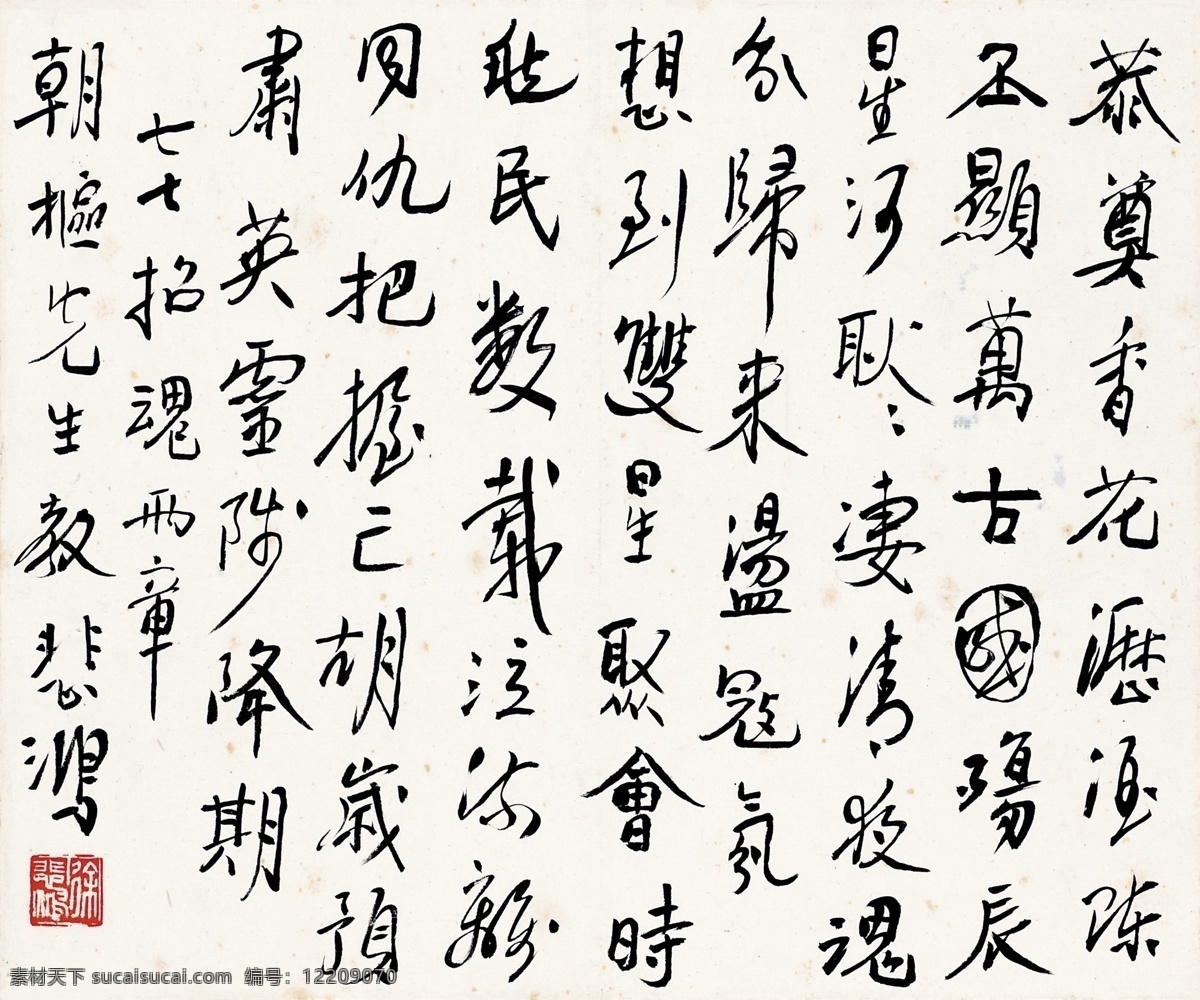 恭奠香花瀝酒陳
丕顯萬古國殤辰
星河耿〻凄清夜魂
兮歸来盪寇氛
想到雙星聚會時
眦民數載泣流離
同仇把握亡胡歲預
肅英靈陟降期
七七招魂兩章
朝樞先生教悲鴻
徐悲鴻
素材天下 sucaisucai.com 编号：12209070